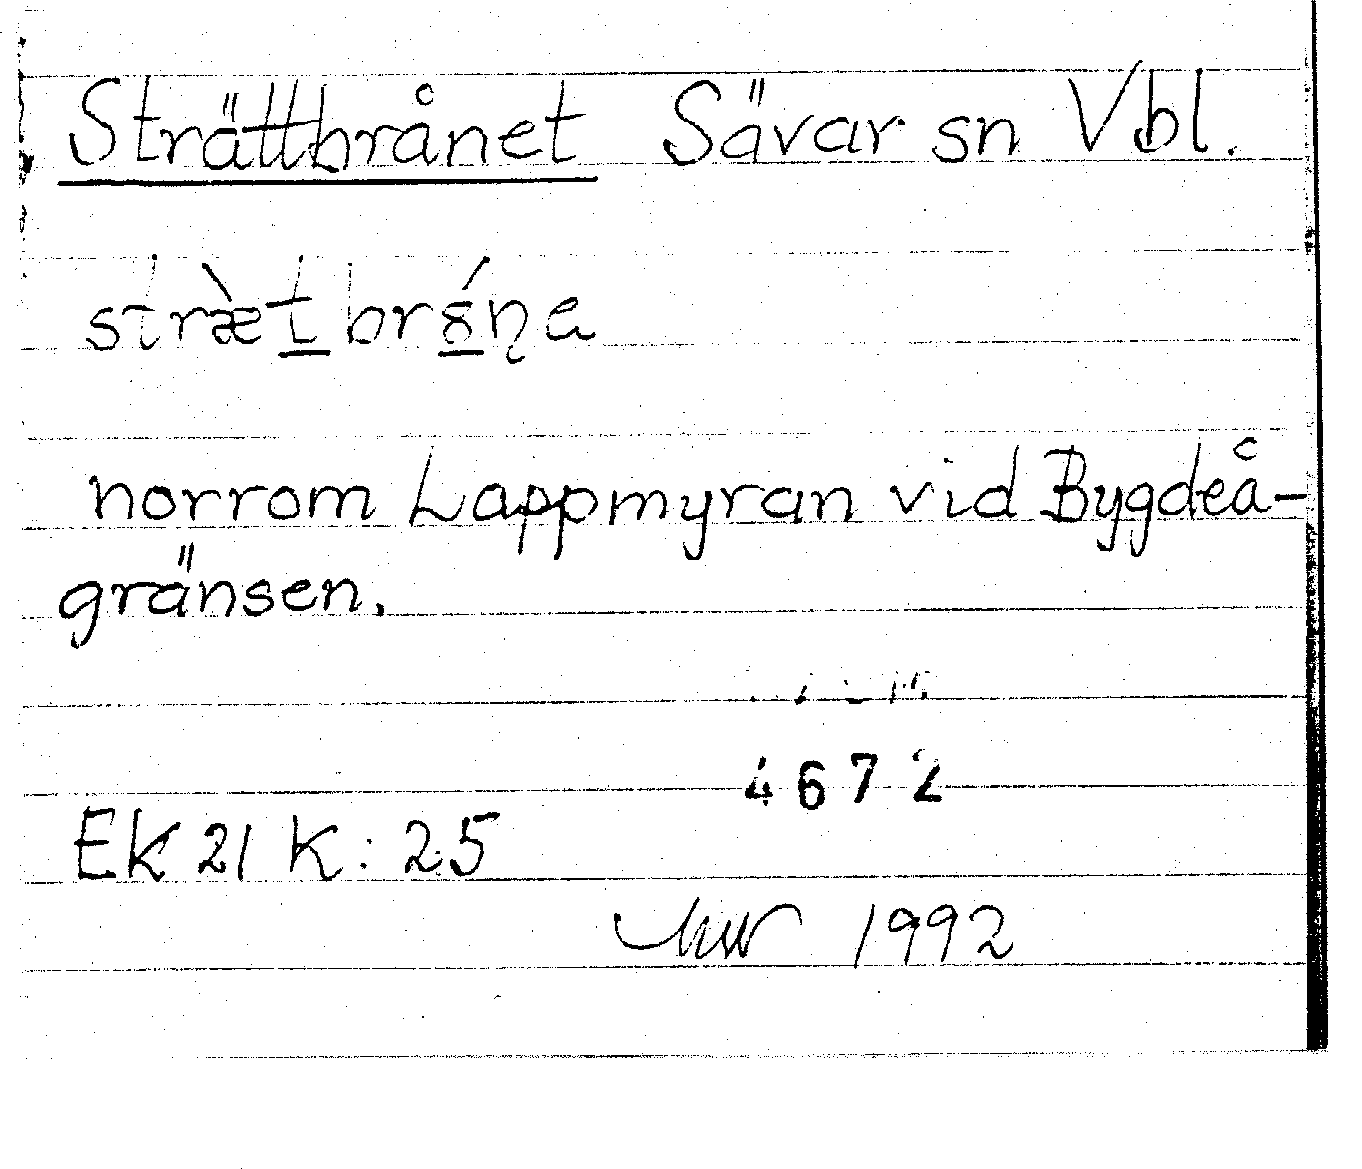 Strättbrånet Sävar sn Vbl.
norrom Lappmyran vid Bygdeå-
gränsen.
4672
Ek 21 K: 25
1992